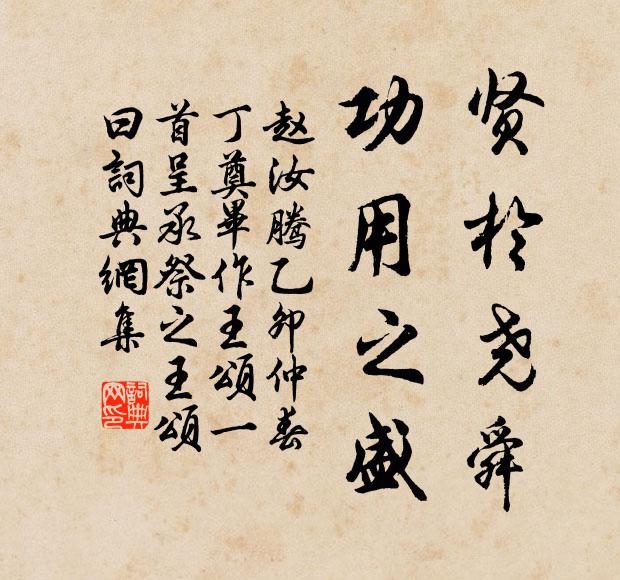 贤於尧舜
功用之盛
赵汝腾乙卯仲春
丁奠畢作王頌一
首呈承祭之王頌
曰詞典網集
詞典
网印